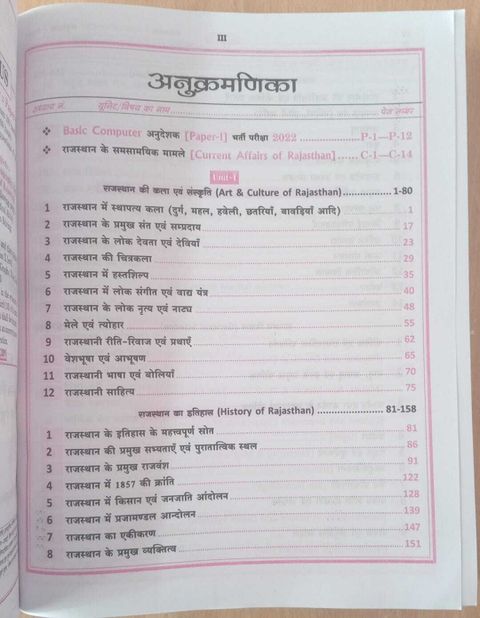 III
अनुक्रमणिका
अध्याय नं. यूनिट/विषय का नाम पेज नम्बर
❖ Basic Computer अनुदेशक [Paper-I] भर्ती परीक्षा 2022 P-1—P-12
❖ राजस्थान के समसामयिक मामले [Current Affairs of Rajasthan] C-1—C-14
Unit-I
राजस्थान की कला एवं संस्कृति (Art & Culture of Rajasthan) 1-80
1 राजस्थान में स्थापत्य कला (दुर्ग, महल, हवेली, छतरियाँ, बावड़ियाँ आदि) 1
2 राजस्थान के प्रमुख संत एवं सम्प्रदाय 17
3 राजस्थान के लोक देवता एवं देवियाँ 23
4 राजस्थान की चित्रकला 29
5 राजस्थान में हस्तशिल्प 35
6 राजस्थान में लोक संगीत एवं वाद्य यंत्र 40
7 राजस्थान के लोक नृत्य एवं नाट्य 48
8 मेले एवं त्योहार 55
9 राजस्थानी रीति-रिवाज एवं प्रथाएँ 62
10 वेशभूषा एवं आभूषण 65
11 राजस्थानी भाषा एवं बोलियाँ 70
12 राजस्थानी साहित्य 75
राजस्थान का इतिहास (History of Rajasthan) 81-158
1 राजस्थान के इतिहास के महत्त्वपूर्ण स्रोत 81
2 राजस्थान की प्रमुख सभ्यताएँ एवं पुरातात्विक स्थल 86
3 राजस्थान के प्रमुख राजवंश 91
4 राजस्थान में 1857 की क्रांति 122
5 राजस्थान में किसान एवं जनजाति आंदोलन 128
6 राजस्थान में प्रजामण्डल आन्दोलन 139
7 राजस्थान का एकीकरण 147
8 राजस्थान के प्रमुख व्यक्तित्व 151